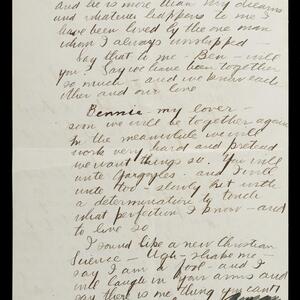 and he is more than my dreams
and whatever happens to me I
have been loved by the one man
whom I always worshipped —
Say that to me Ben — will
you? Say we have been together
so much — and we know each
other and our love
Bennie my lover —
soon we will be together again
In the meanwhile we will
work very hard and pretend
we want things so. You will
write Gargoyles. and I will
write too — slowly but with
a determination to touch
what perfection I know — and
to live so
I sound like a new Christian
Science — Ugh — shake me —
say I am a fool — and I
will laugh in your arms and
say there is one thing you can't